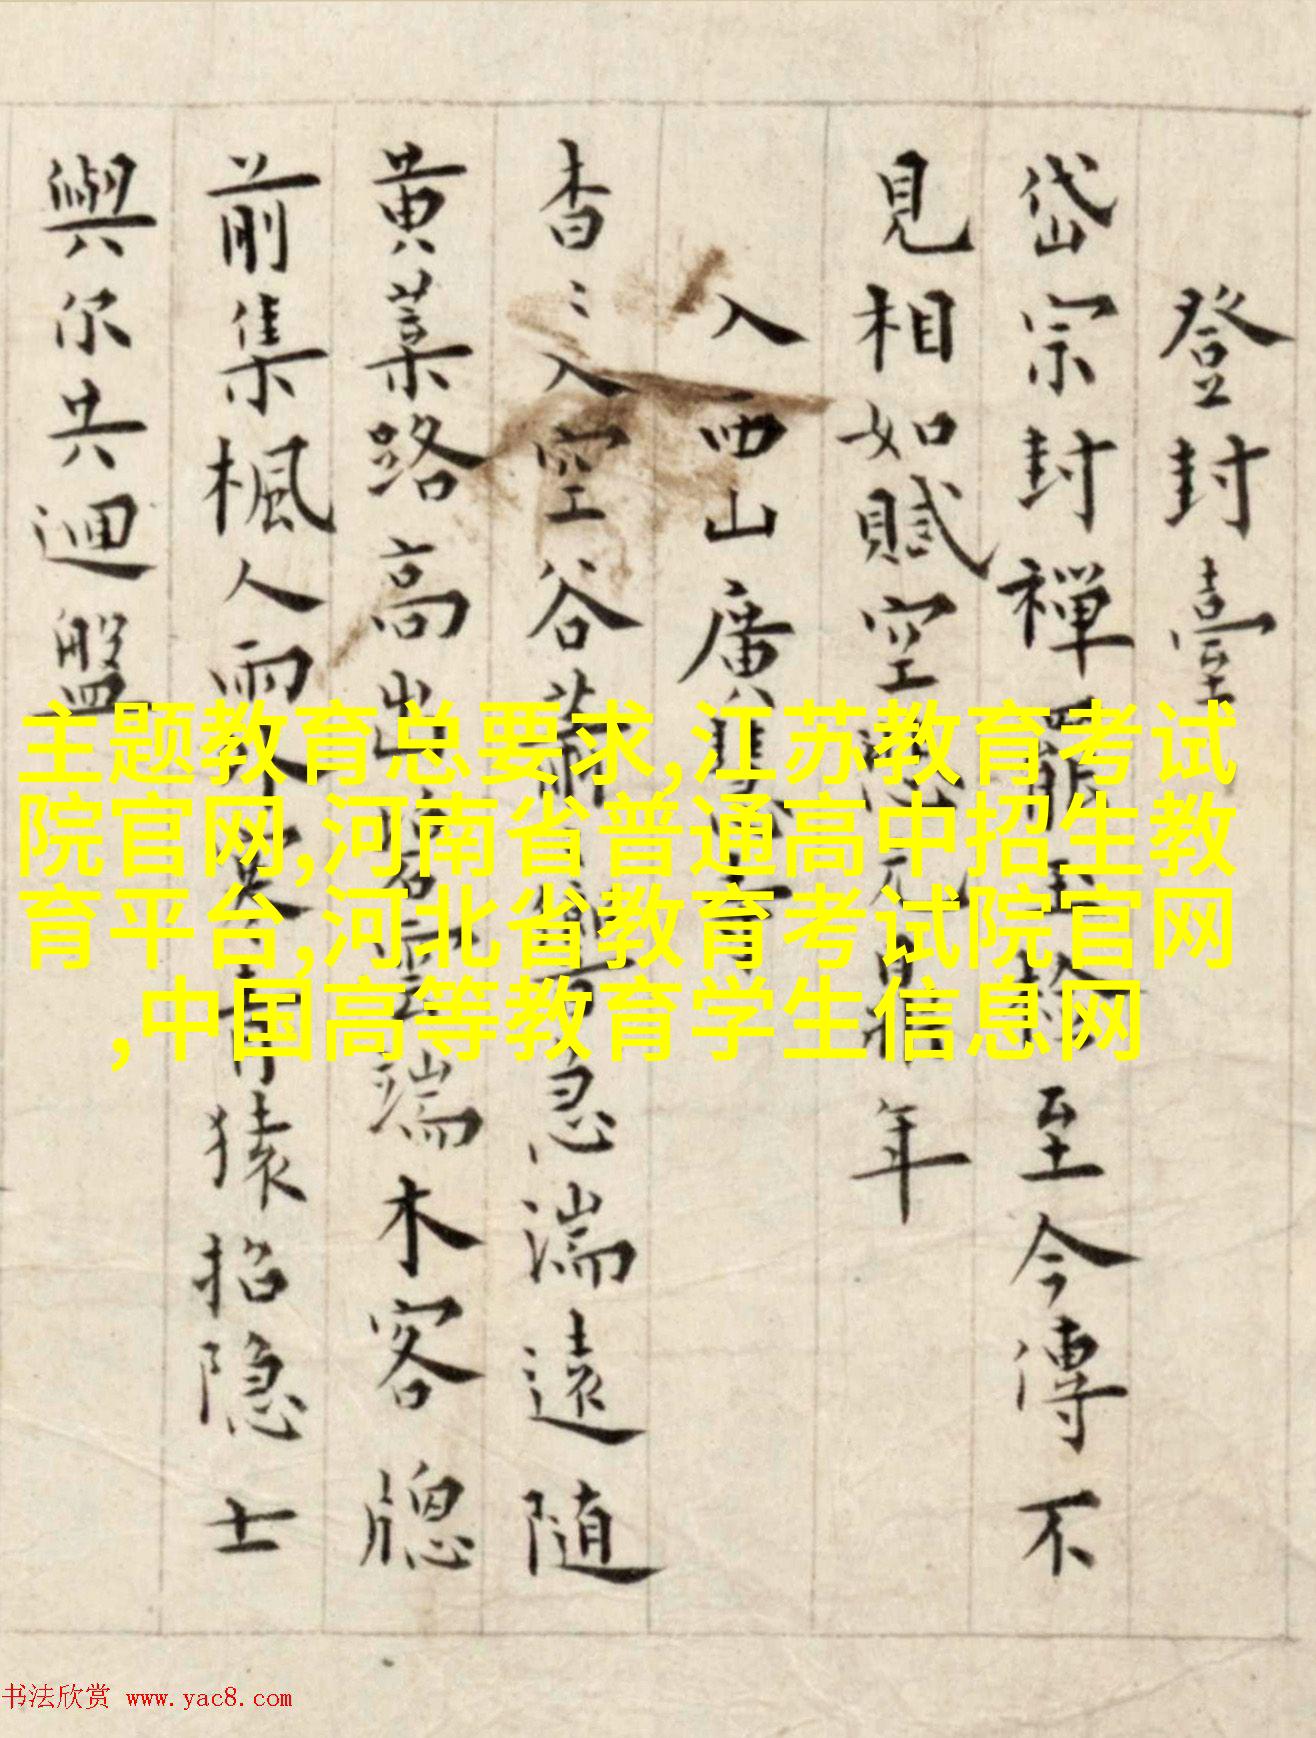 登封臺
岱宗封禪罷玉檢至今傳不
見相如賦空元鼎年
入西山廣
杳〻入空谷蕭急湍遠隨
黄葉路高出雲端木客牕
前集楓人雨青猿招隱士
與尔共迴盤
主题教育总要求,江苏教育考试
院官网,河南省普通高中招生教
育平台,河北省教育考试院官网
,中国高等教育学生信息网
书法欣赏 www.yac8.com